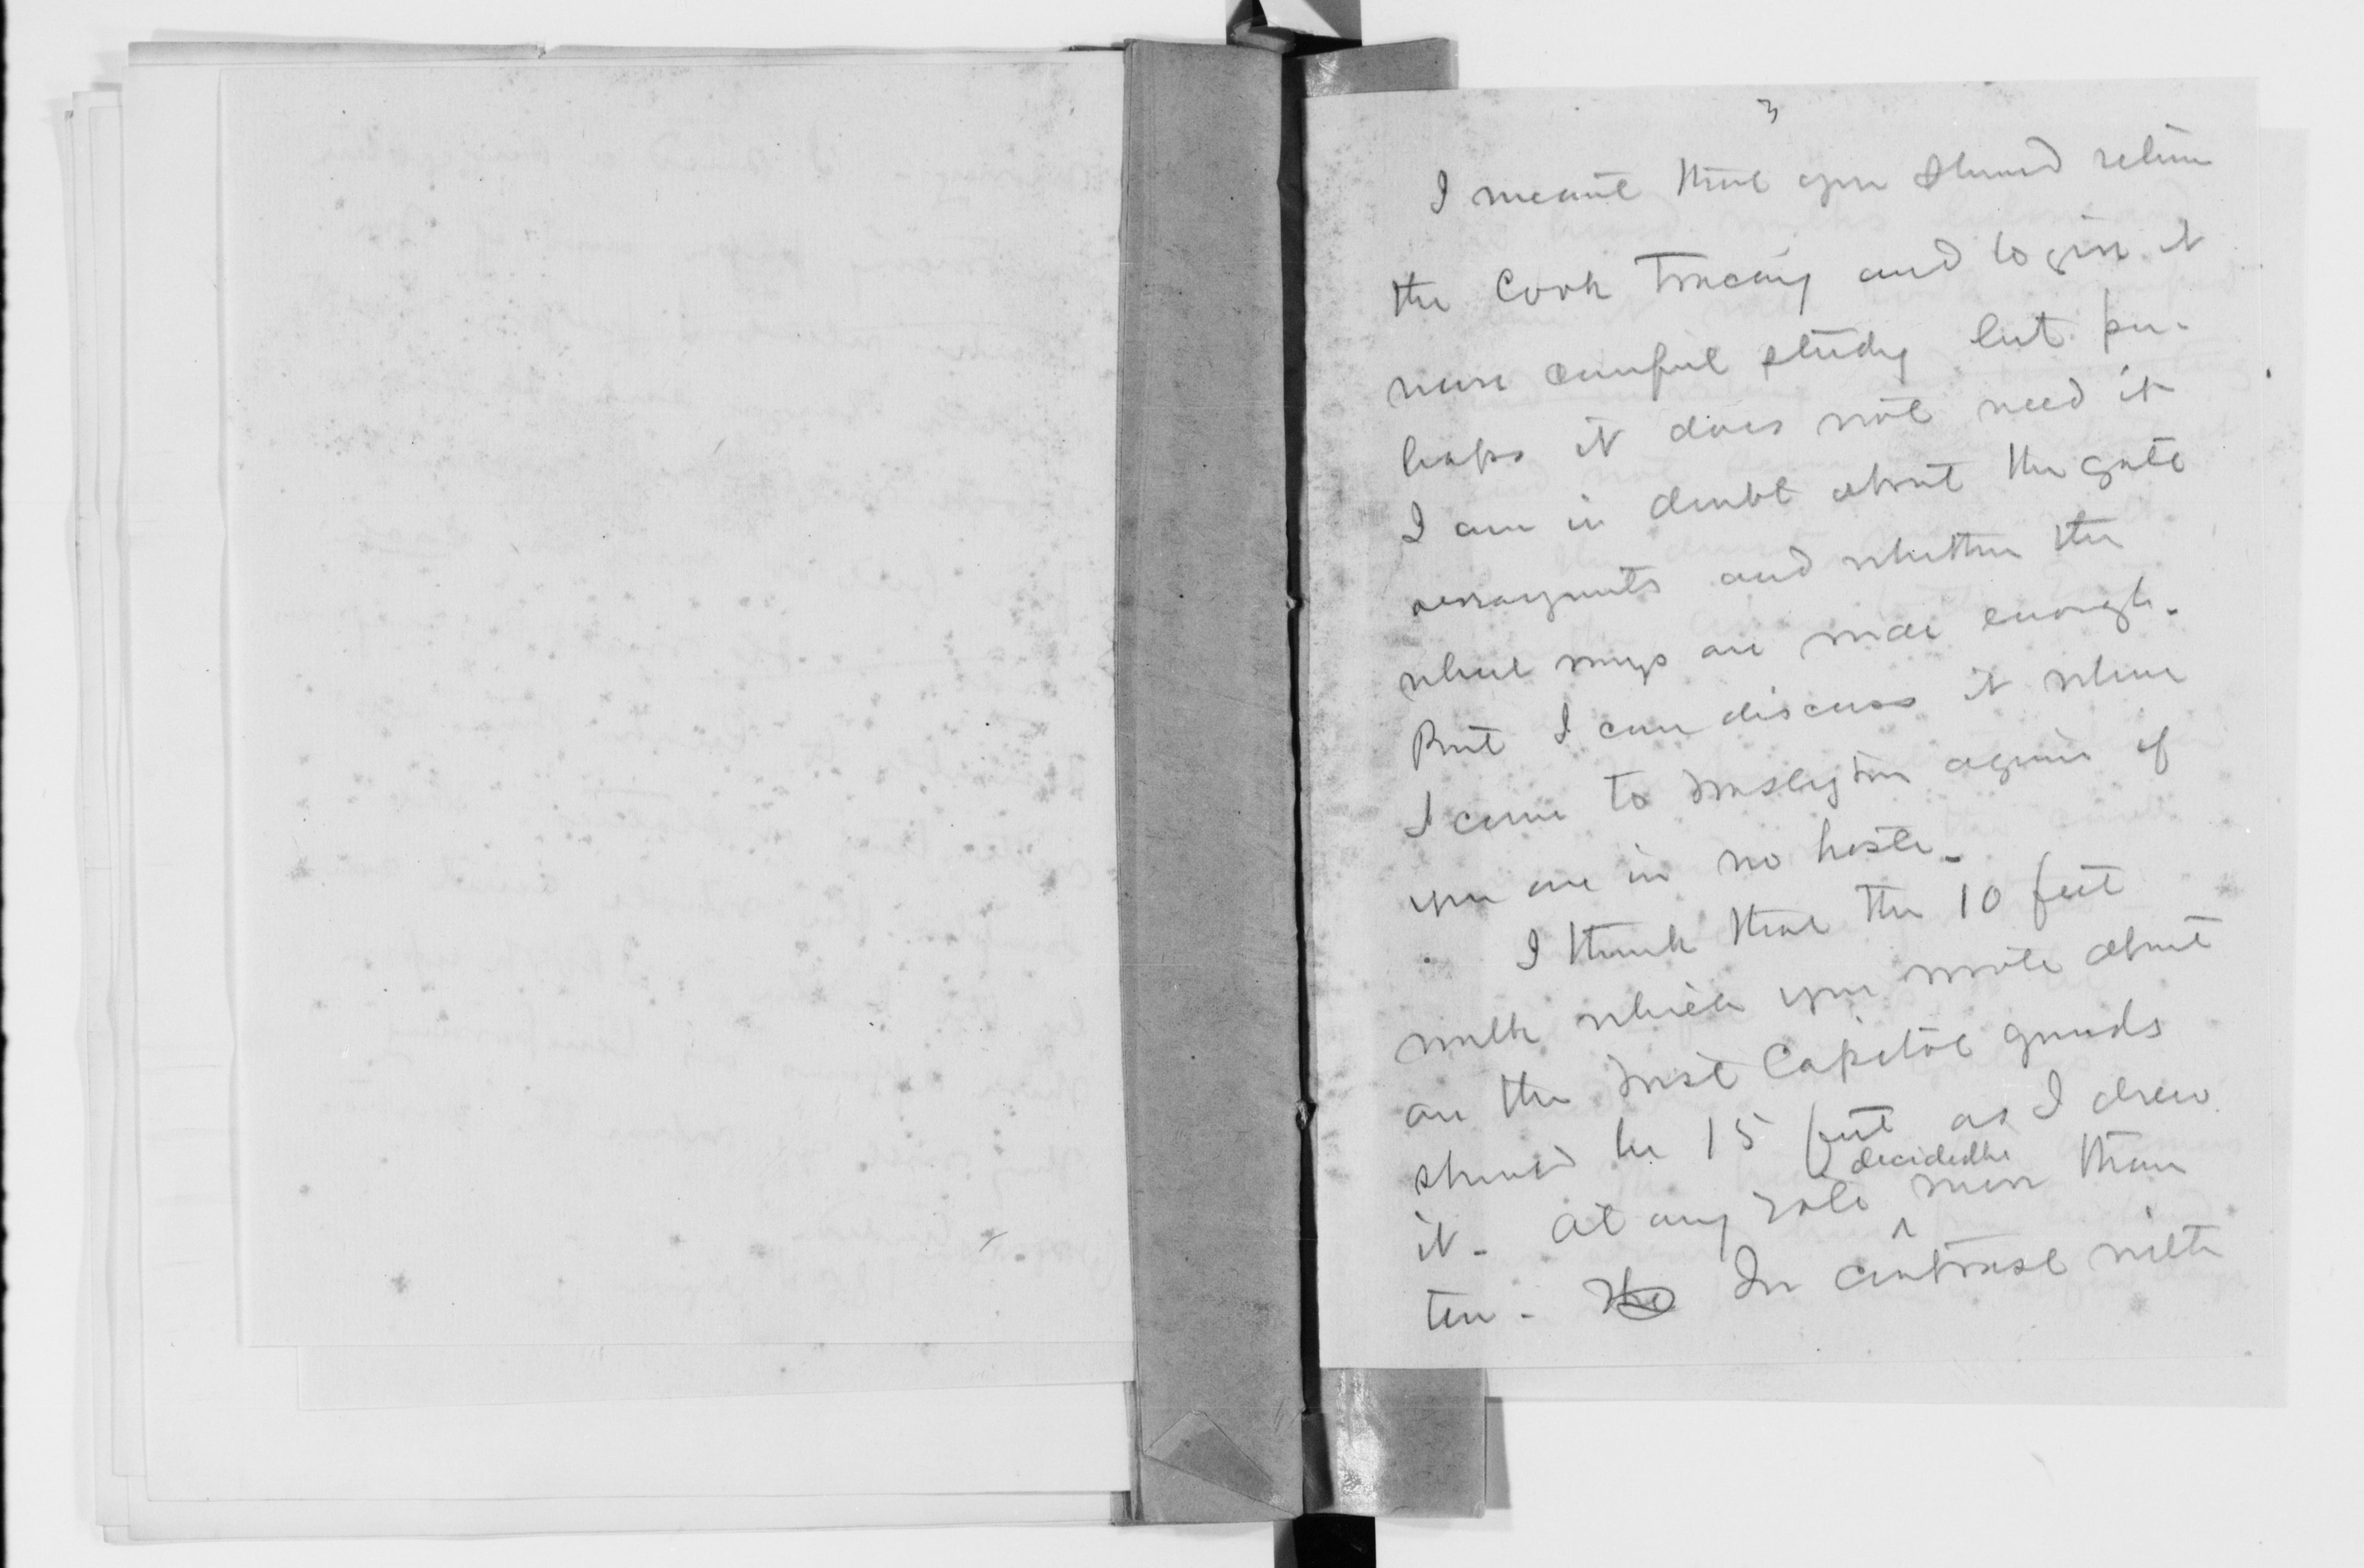 3
I meant that you should return
the Cook Tracing and to give it
more careful study but per-
haps it does not need it
I am in doubt about the gate
arrangments and whether the
wheel ways are wide enough.
But I can discuss it when
I come to Washington again if
you are in no haste.
I think that the 10 feet
walk which you wrote about
on the West Capitol grounds
should be 15 feet as I drew
it - At any rate decidedly more than
ten - In contrast with